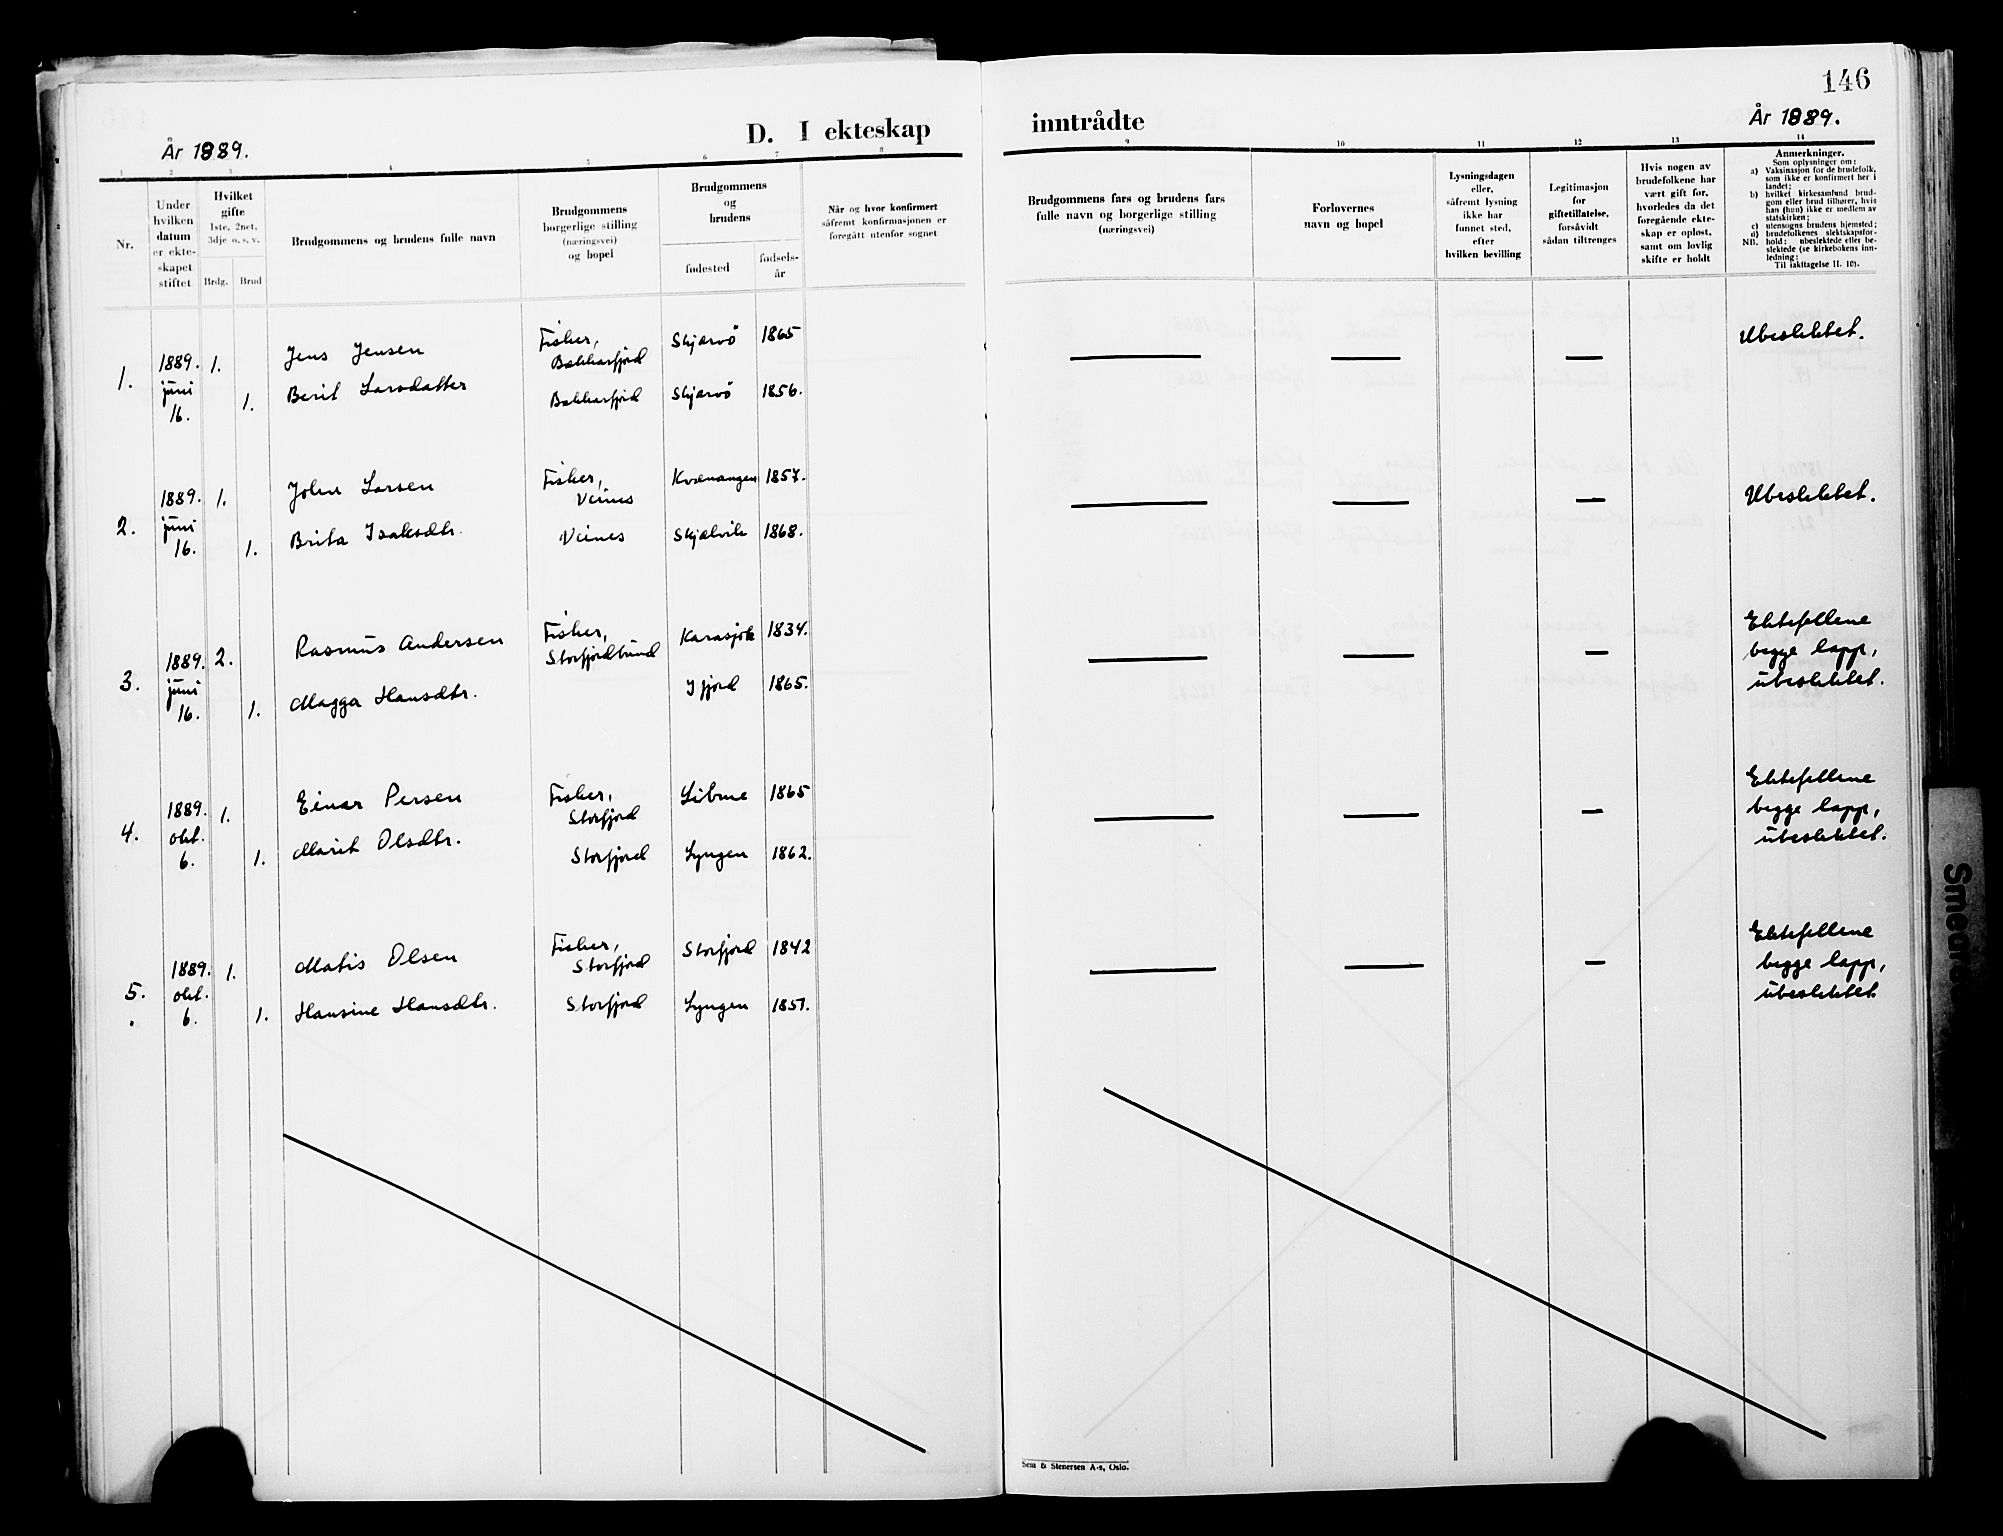 146
År 1889.
D. I ekteskap inntrådte
År 1889.
1 2 3 4 5 6 7 8 9 10 11 12 13 14
Nr.
Under
hvilken
datum
er ekte-
skapet
stiftet
Hvilket
gifte
1ste, 2net,
3dje o. s. v.
Brdg. Brud
Brudgommens og brudens fulle navn
Brudgommens
borgerlige stilling
(næringsvei)
og bopel
Brudgommens
og
brudens
fødested
fødsels-
år
Når og hvor konfirmert
såfremt konfirmasjonen er
foregått utenfor sognet
Brudgommens fars og brudens fars
fulle navn og borgerlige stilling
(næringsvei)
Forlovernes
navn og bopel
Lysningsdagen
eller,
såfremt lysning
ikke har
funnet sted,
efter
hvilken bevilling
Legitimasjon
for
giftetillatelse,
forsåvidt
sådan tiltrenges
Hvis nogen av
brudefolkene har
vært gift før,
hvorledes da det
foregående ekte-
skap er opløst,
samt om lovlig
skifte er holdt
Anmerkninger.
Som oplysninger om:
a) Vaksinasjon for de brudefolk,
som ikke er konfirmert her i
landet;
b) hvilket kirkesamfund brud-
gom eller brud tilhører, hvis
han (hun) ikke er medlem av
statskirken;
c) utensogns brudens hjemsted;
d) brudefolkenes slektskapsfor-
hold: ubeslektede eller be-
slektede (se kirkebokens inn-
ledning;
NB.
Til iakttagelse II. 10).
1.
1889.
juni
16.
1. Jens Jensen Fisker,
Bakkarfjord Skjærvö 1865
1. Berit Larsdatter Bakkarfjord Skjærvö 1856.
Ubeslektet.
2.
1889.
juni
16.
1. John Larsen Fisker,
Veines Kvænangen 1857.
1. Brita Isaksdtr. Veines Skjælvik 1868.
Ubeslektet.
3.
1889.
juni
16.
2. Rasmus Andersen Fisker,
Storfjordbund Karasjok 1834.
1. Magga Hansdtr. Ifjord 1865.
Ektefellene
begge lapp,
ubeslektet.
4.
1889.
okt.
6.
1. Einar Persen Fisker,
Storfjord 1865
1. Marit Olsdtr. Storfjord Lyngen 1862.
Ektefellene
begge lapp,
ubeslektet.
5.
1889.
okt.
6.
1. Matis Olsen Fisker,
Storfjord Storfjord 1842
1. Hansine Hansdtr. Storfjord Lyngen 1851.
Ektefellene
begge lapp,
ubeslektet.
Sem & Stenersen A-s, Oslo.